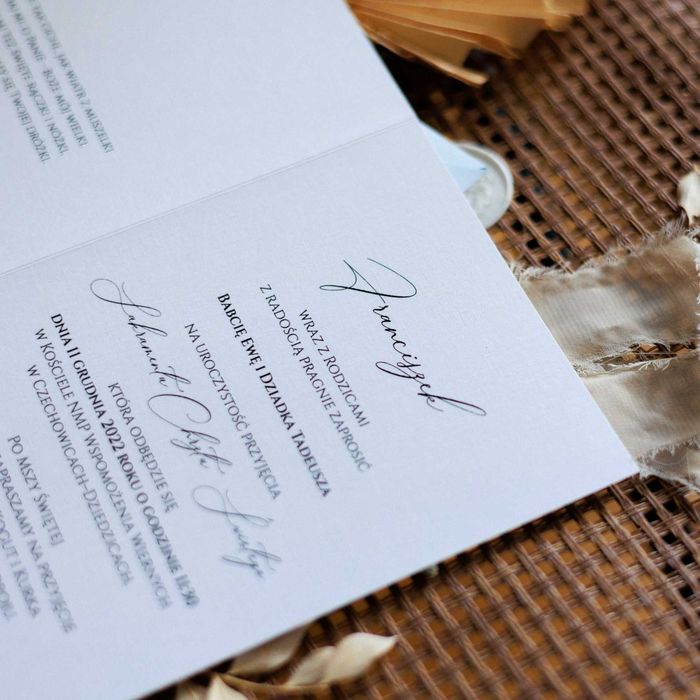 JAK WIATR Z MUSZELKI
O PANIE - BOŻE MÓJ WIELKI
TEŻ ŚWIĘTE RĄCZKI I NÓŻKI,
SIĘ TWOJEJ DRÓŻKI.
Franciszek
WRAZ Z RODZICAMI
Z RADOŚCIĄ PRAGNIE ZAPROSIĆ
BABCIĘ EWĘ I DZIADKA TADEUSZA
NA UROCZYSTOŚĆ PRZYJĘCIA
Sakramentu Chrztu Świętego
KTÓRA ODBĘDZIE SIĘ
DNIA 11 GRUDNIA 2022 ROKU O GODZINIE 11:30
W KOŚCIELE NMP WSPOMOŻENIA WIERNYCH
W CZECHOWICACH-DZIEDZICACH
PO MSZY ŚWIĘTEJ
ZAPRASZAMY NA PRZYJĘCIE
KOGUT I KURKA